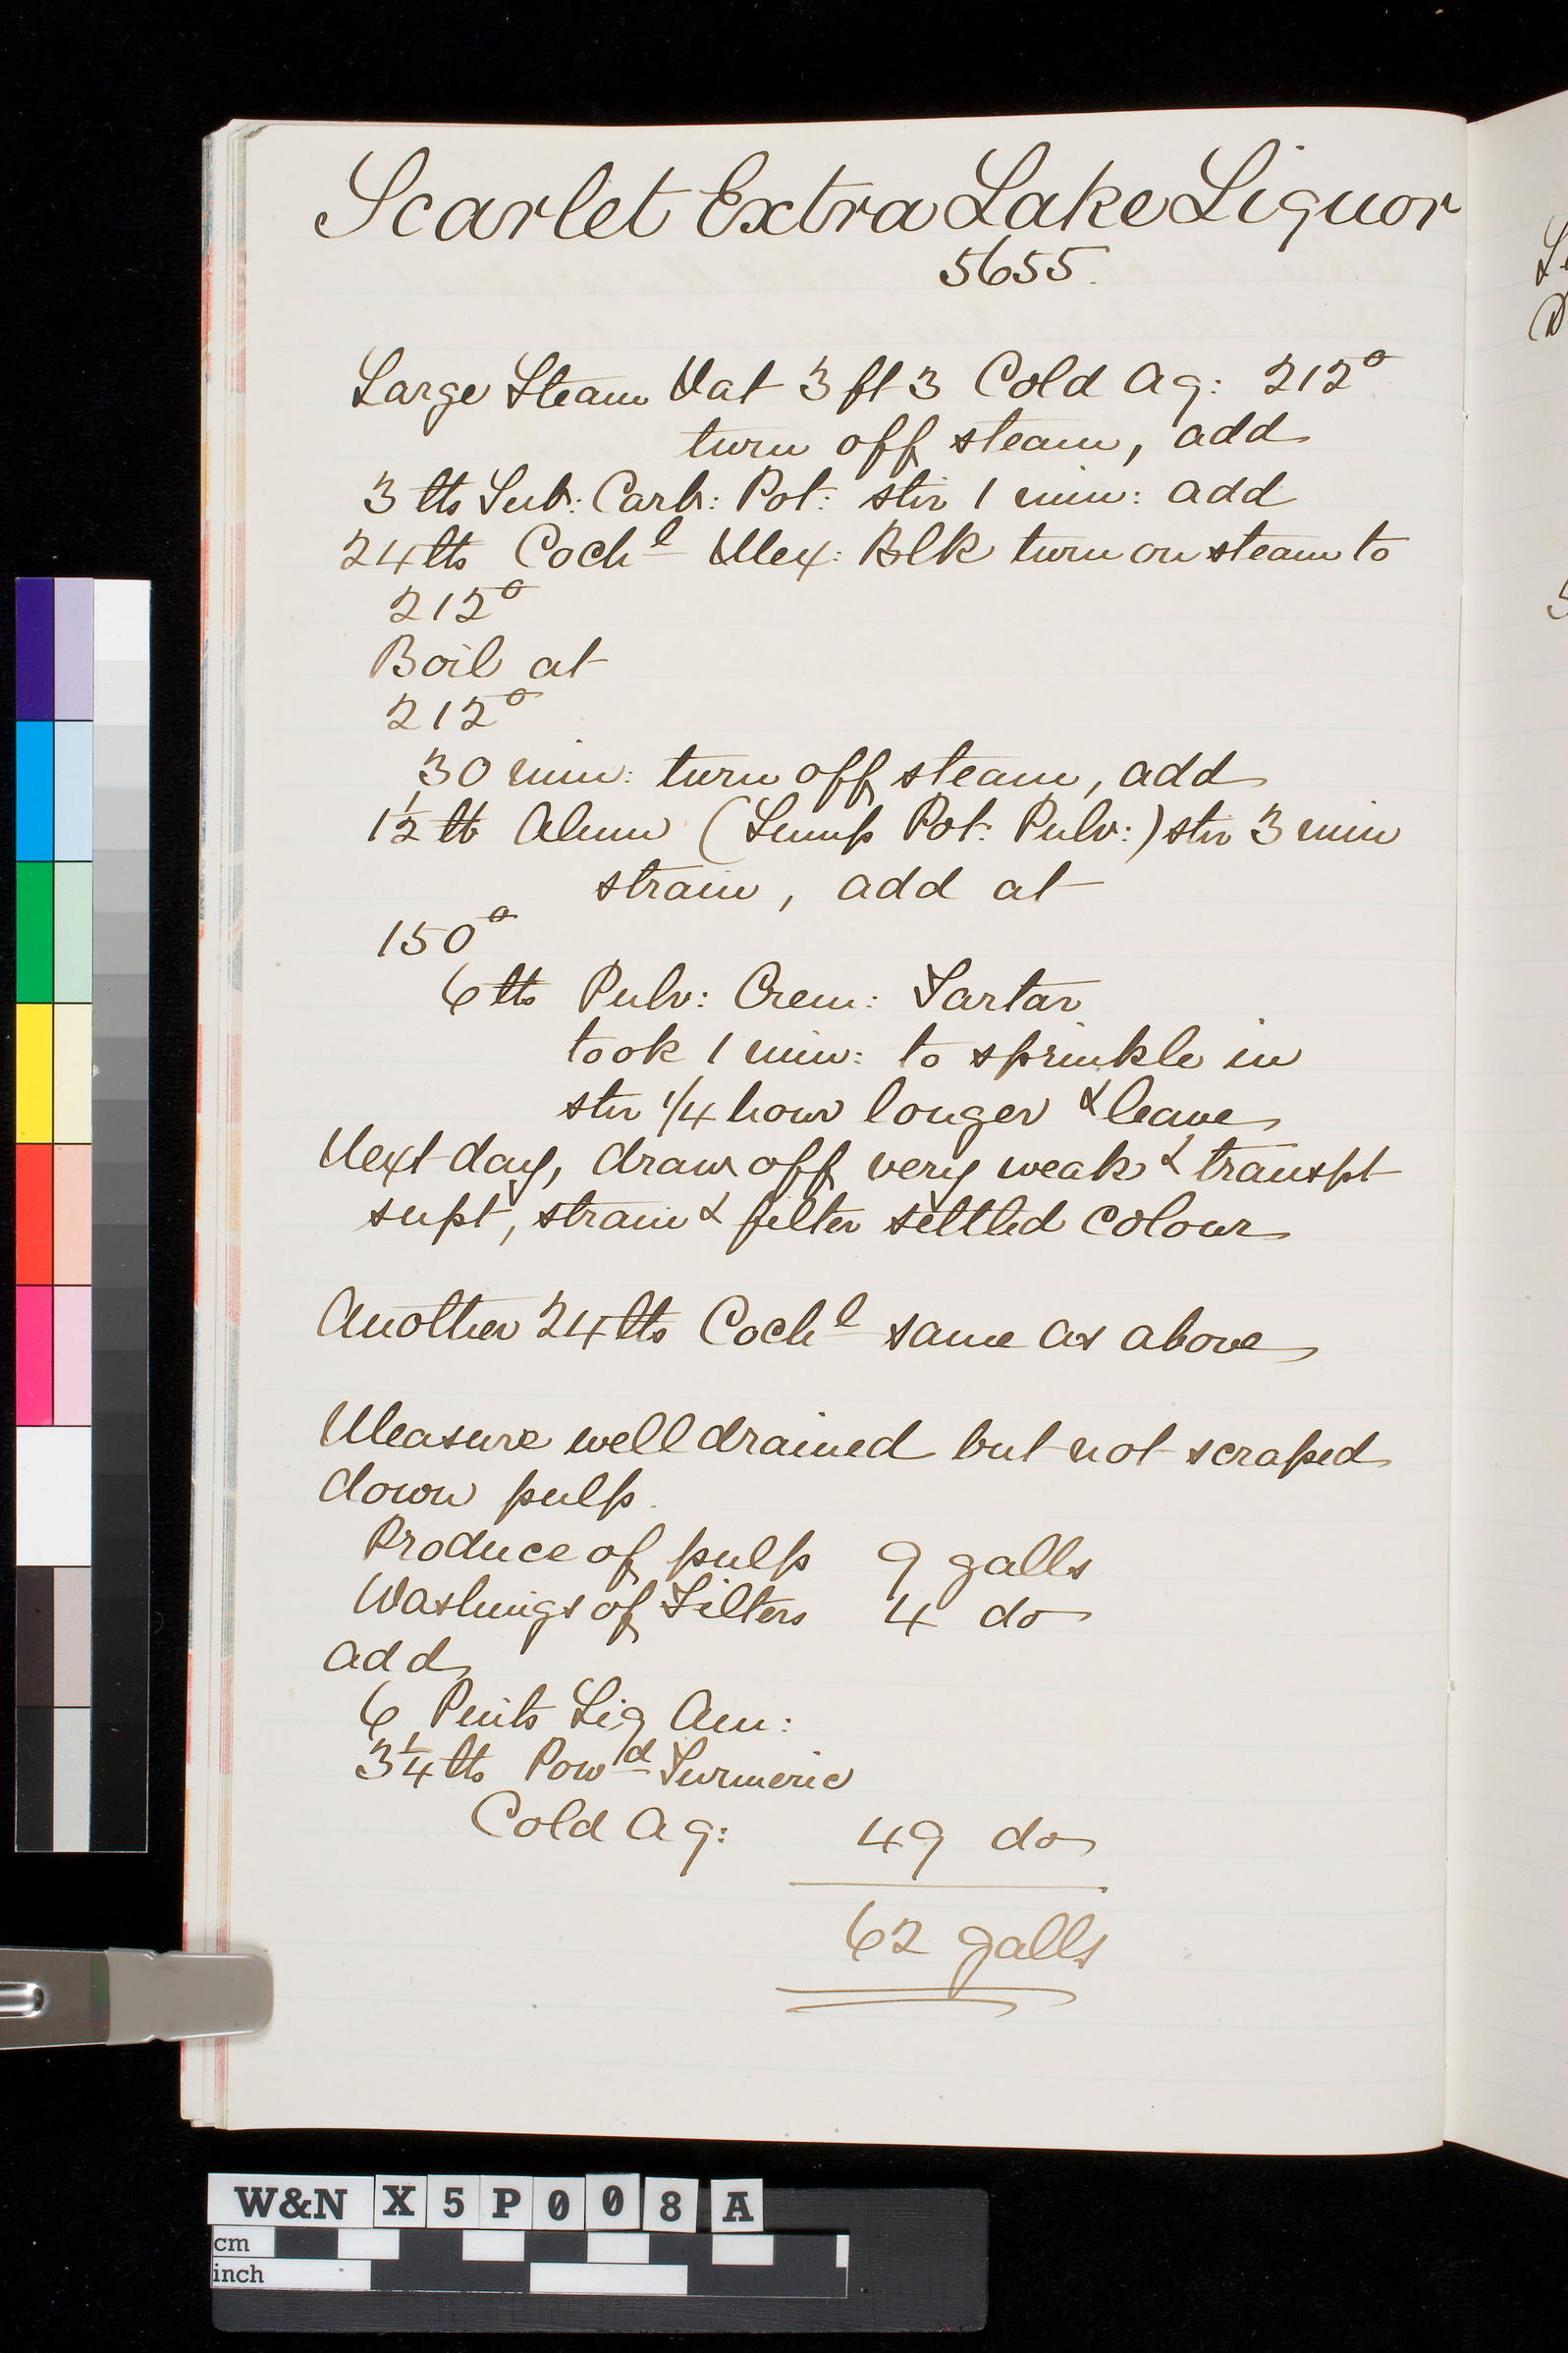 Scarlet Extra Lake Liquor
5655.
Large Steam Vat 3 ft 3 Cold Aq: 212°
turn off steam, add
3 lbs Sub: Carb: Pot: stir 1 min: add
24 lbs Coch^l Mex: Blk turn on steam to
212°
Boil at
212°
30 min: turn off steam, add
1½ lb Alum (Lump Pot: Pulv:) stir 3 min
strain, add at
150°
6 lbs Pulv: Crem: Tartar
took 1 min: to sprinkle in
stir 1/4 hour longer & leave
Next day, draw off very weak & transpt
supt, strain & filter settled colour
Another 24 lbs Coch^l same as above
Measure well drained but not scraped
down pulp.
Produce of pulp 9 galls
Washings of Filters 4 do
add
6 Pints Liq Am:
3¼ lbs Pow^d Turmeric
Cold Aq: 49 do
62 galls
W&N X 5 P 0 0 8 A
cm
inch